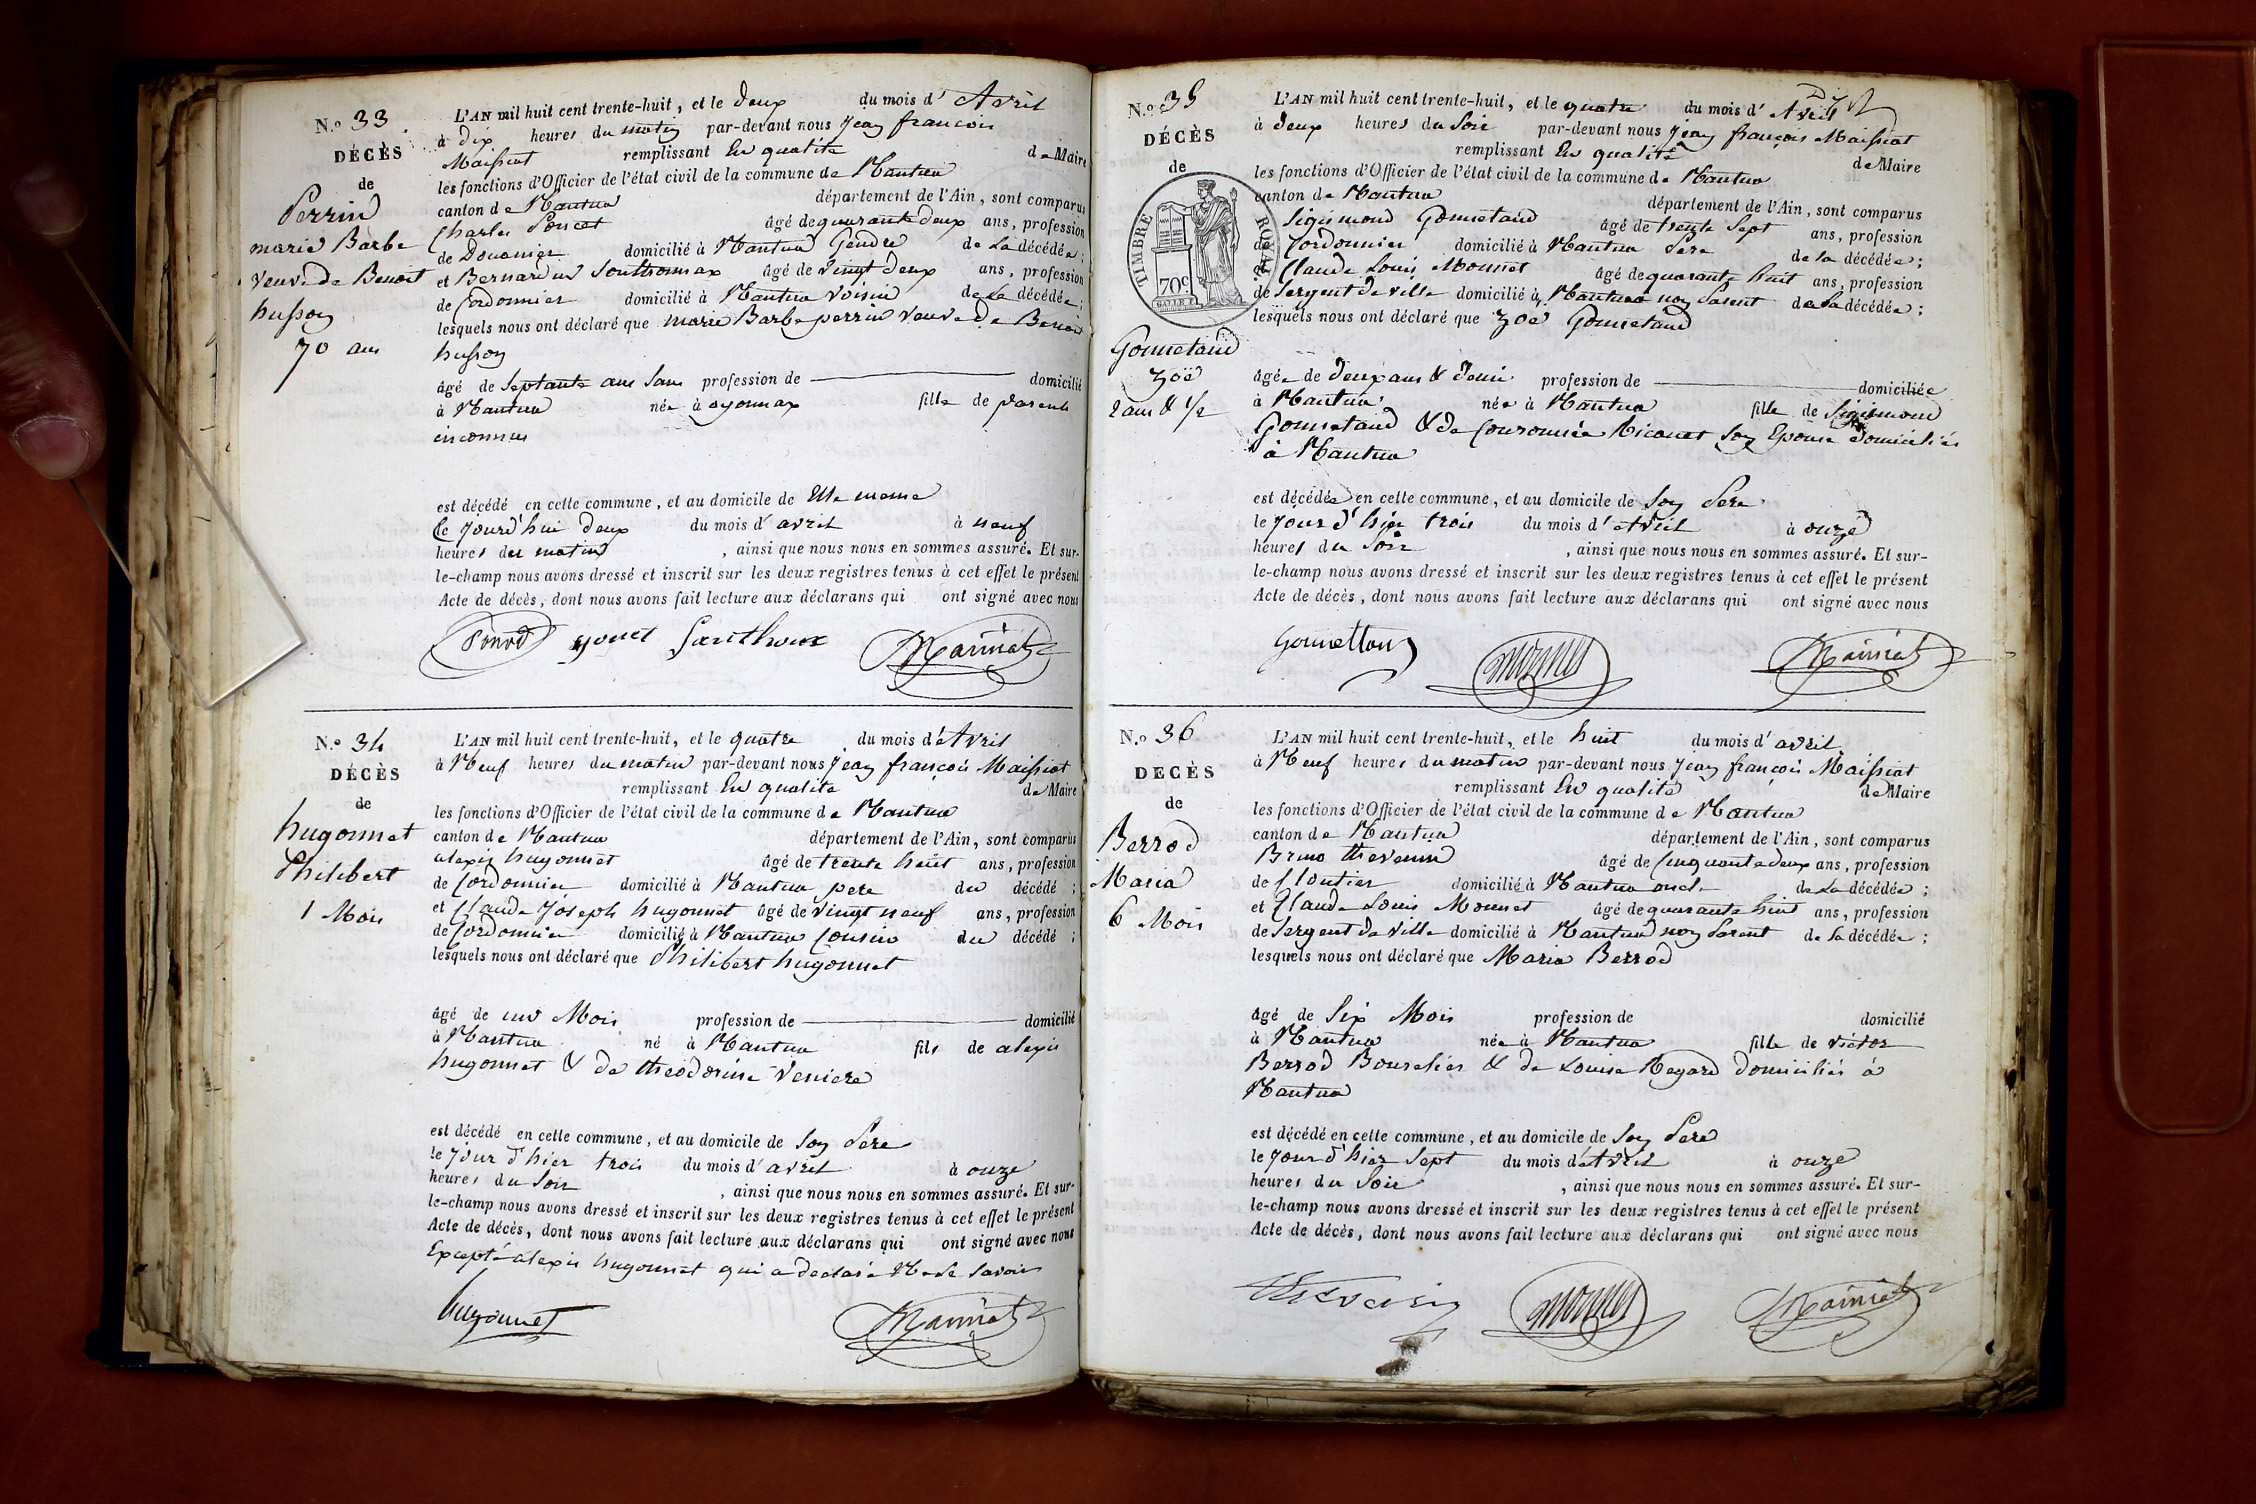 N.o 33
DÉCÈS
de
Perrin
marie Barbe
veuve de Benoit
husson
70 ans
L'AN mil huit cent trente-huit, et le deux du mois d' Avril
à dix heures du matin par-devant nous Jean françois
Maissiat remplissant En qualité de Maire
les fonctions d'Officier de l'état civil de la commune de Nantua
canton de Nantua département de l'Ain, sont comparus
Charles Poncet âgé de quarante deux ans, profession
de Douanier domicilié à Nantua Gendre de La décédée ;
et Bernardin Southonnax âgé de vingt deux ans, profession
de Cordonnier domicilié à Nantua voisin de La décédée ;
lesquels nous ont déclaré que marie Barbe perrin veuve de Benoit
husson
âgé de septante ans sans profession de domicilié
à Nantua née à oyonnax fille de parents
inconnus
est décédé en cette commune, et au domicile de Elle meme
le Jourd'hui deux du mois d' avril à neuf
heures du matin , ainsi que nous nous en sommes assuré. Et sur-
le-champ nous avons dressé et inscrit sur les deux registres tenus à cet effet le présent
Acte de décès, dont nous avons fait lecture aux déclarans qui ont signé avec nous
Maissiat
N.o 34
DÉCÈS
de
hugonnet
Philibert
1 Mois
L'AN mil huit cent trente-huit, et le quatre du mois d' Avril
à Neuf heures du matin par-devant nous Jean françois Maissiat
remplissant En qualité de Maire
les fonctions d'Officier de l'état civil de la commune de Nantua
canton de Nantua département de l'Ain, sont comparus
alexis hugonnet âgé de trente huit ans, profession
de Cordonnier domicilié à Nantua pere du décédé ;
et Claude Joseph hugonnet âgé de vingt neuf ans, profession
de Cordonnier domicilié à Nantua Cousin du décédé ;
lesquels nous ont déclaré que Philibert hugonnet
âgé de un Mois profession de domicilié
à Nantua né à Nantua fils de alexis
hugonnet & de theodorine Veniere
est décédé en cette commune, et au domicile de Son Pere
le Jour d'hier trois du mois d' avril à onze
heures du Soir , ainsi que nous nous en sommes assuré. Et sur-
le-champ nous avons dressé et inscrit sur les deux registres tenus à cet effet le présent
Acte de décès, dont nous avons fait lecture aux déclarans qui ont signé avec nous
Excepté alexis hugonnet qui a declaré Ne le savoir
hugonnet Maissiat
N.o 35
DÉCÈS
de
TIMBRE ROYAL
70c
Gonnetand
Zoë
2 ans & 1/2
L'AN mil huit cent trente-huit, et le quatre du mois d' Avril
à deux heures du Soir par-devant nous Jean françois Maissiat
remplissant En qualité de Maire
les fonctions d'Officier de l'état civil de la commune de Nantua
canton de Nantua département de l'Ain, sont comparus
Sigismond Gonnetand âgé de trente Sept ans, profession
de Cordonnier domicilié à Nantua Pere de la décédée ;
et Claude Louis Monnet âgé de quarante huit ans, profession
de Sergent de ville domicilié à Nantua non Parent de La décédée ;
lesquels nous ont déclaré que Zoé Gonnetand
âgée de deux ans & demi profession de domiciliée
à Nantua née à Nantua fille de Sigismond
Gonnetand & de Couronnée Nicanet Son Epouse domiciliés
à Nantua
est décédée en cette commune, et au domicile de Son Pere
le Jour d'hier trois du mois d' Avril à onze
heures du Soir , ainsi que nous nous en sommes assuré. Et sur-
le-champ nous avons dressé et inscrit sur les deux registres tenus à cet effet le présent
Acte de décès, dont nous avons fait lecture aux déclarans qui ont signé avec nous
Monnet Maissiat
N.o 36
DÉCÈS
de
Berrod
Maria
6 Mois
L'AN mil huit cent trente-huit, et le huit du mois d' avril
à Neuf heures du matin par-devant nous Jean françois Maissiat
remplissant En qualité de Maire
les fonctions d'Officier de l'état civil de la commune de Nantua
canton de Nantua département de l'Ain, sont comparus
Bruno thevenin âgé de Cinquante deux ans, profession
de Cloutier domicilié à Nantua oncle de La décédée ;
et Claude Louis Monnet âgé de quarante huit ans, profession
de Sergent de ville domicilié à Nantua non Parent de La décédée ;
lesquels nous ont déclaré que Maria Berrod
âgé de Six Mois profession de domicilié
à Nantua née à Nantua fille de victor
Berrod Bourelier & de Louise Regard domiciliés à
Nantua
est décédé en cette commune, et au domicile de Son Pere
le Jour d'hier Sept du mois d' Avril à onze
heures du Soir , ainsi que nous nous en sommes assuré. Et sur-
le-champ nous avons dressé et inscrit sur les deux registres tenus à cet effet le présent
Acte de décès, dont nous avons fait lecture aux déclarans qui ont signé avec nous
Monnet Maissiat